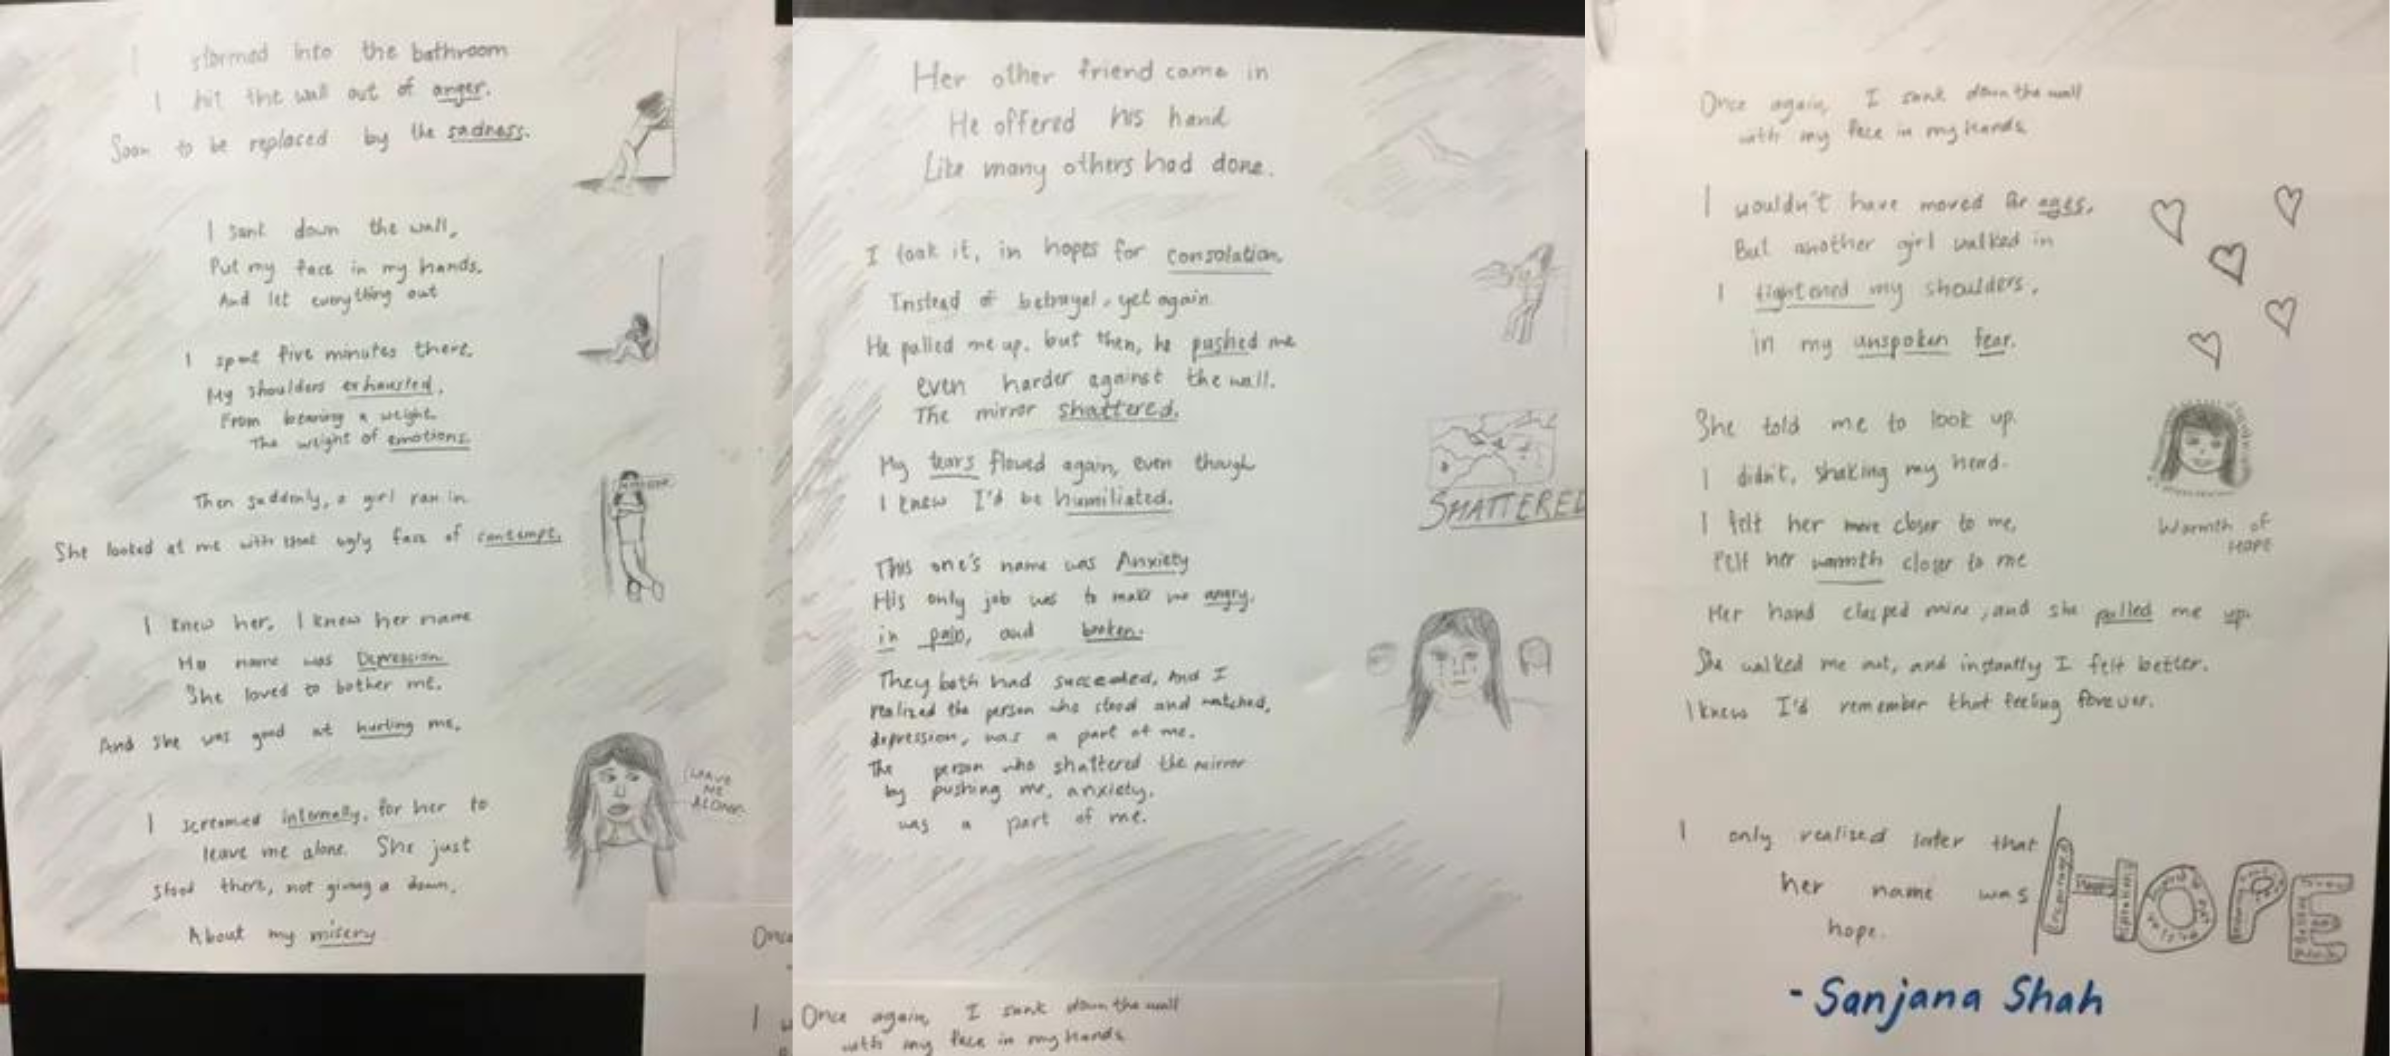 I stormed into the bathroom
I hit the wall out of anger.
Soon to be replaced by the sadness.
I sank down the wall,
Put my face in my hands.
And let everything out
I spent five minutes there.
My shoulders exhausted,
From bearing a weight.
The weight of emotions.
Then suddenly, a girl ran in.
She looked at me with that ugly face of contempt.
I knew her. I knew her name
Her name was Depression.
She loved to bother me.
And she was good at hurting me.
I screamed internally, for her to
leave me alone. She just
stood there, not giving a damn.
About my misery
LEAVE
ME
ALONE
Her other friend came in
He offered his hand
Like many others had done.
I took it, in hopes for consolation.
Instead of betrayal, yet again.
He pulled me up, but then, he pushed me
even harder against the wall.
The mirror shattered.
My tears flowed again, even though
I knew I'd be humiliated.
SHATTERED
This one's name was Anxiety
His only job was to make me angry.
in pain, and broken.
They both had succeeded, And I
realized the person who stood and watched,
depression, was a part of me.
The person who shattered the mirror
by pushing me, anxiety,
was a part of me.
Once again, I sank down the wall
with my face in my hands
Once again, I sank down the wall
with my face in my hands
I wouldn't have moved for ages.
But another girl walked in
I tightened my shoulders.
in my unspoken fear.
She told me to look up.
I didn't, shaking my head.
I felt her move closer to me,
Felt her warmth closer to me
Warmth of
HOPE
Her hand clasped mine, and she pulled me up.
She walked me out, and instantly I felt better.
I knew I'd remember that feeling forever.
I only realized later that
her name was
hope.
HOPE
- Sanjana Shah